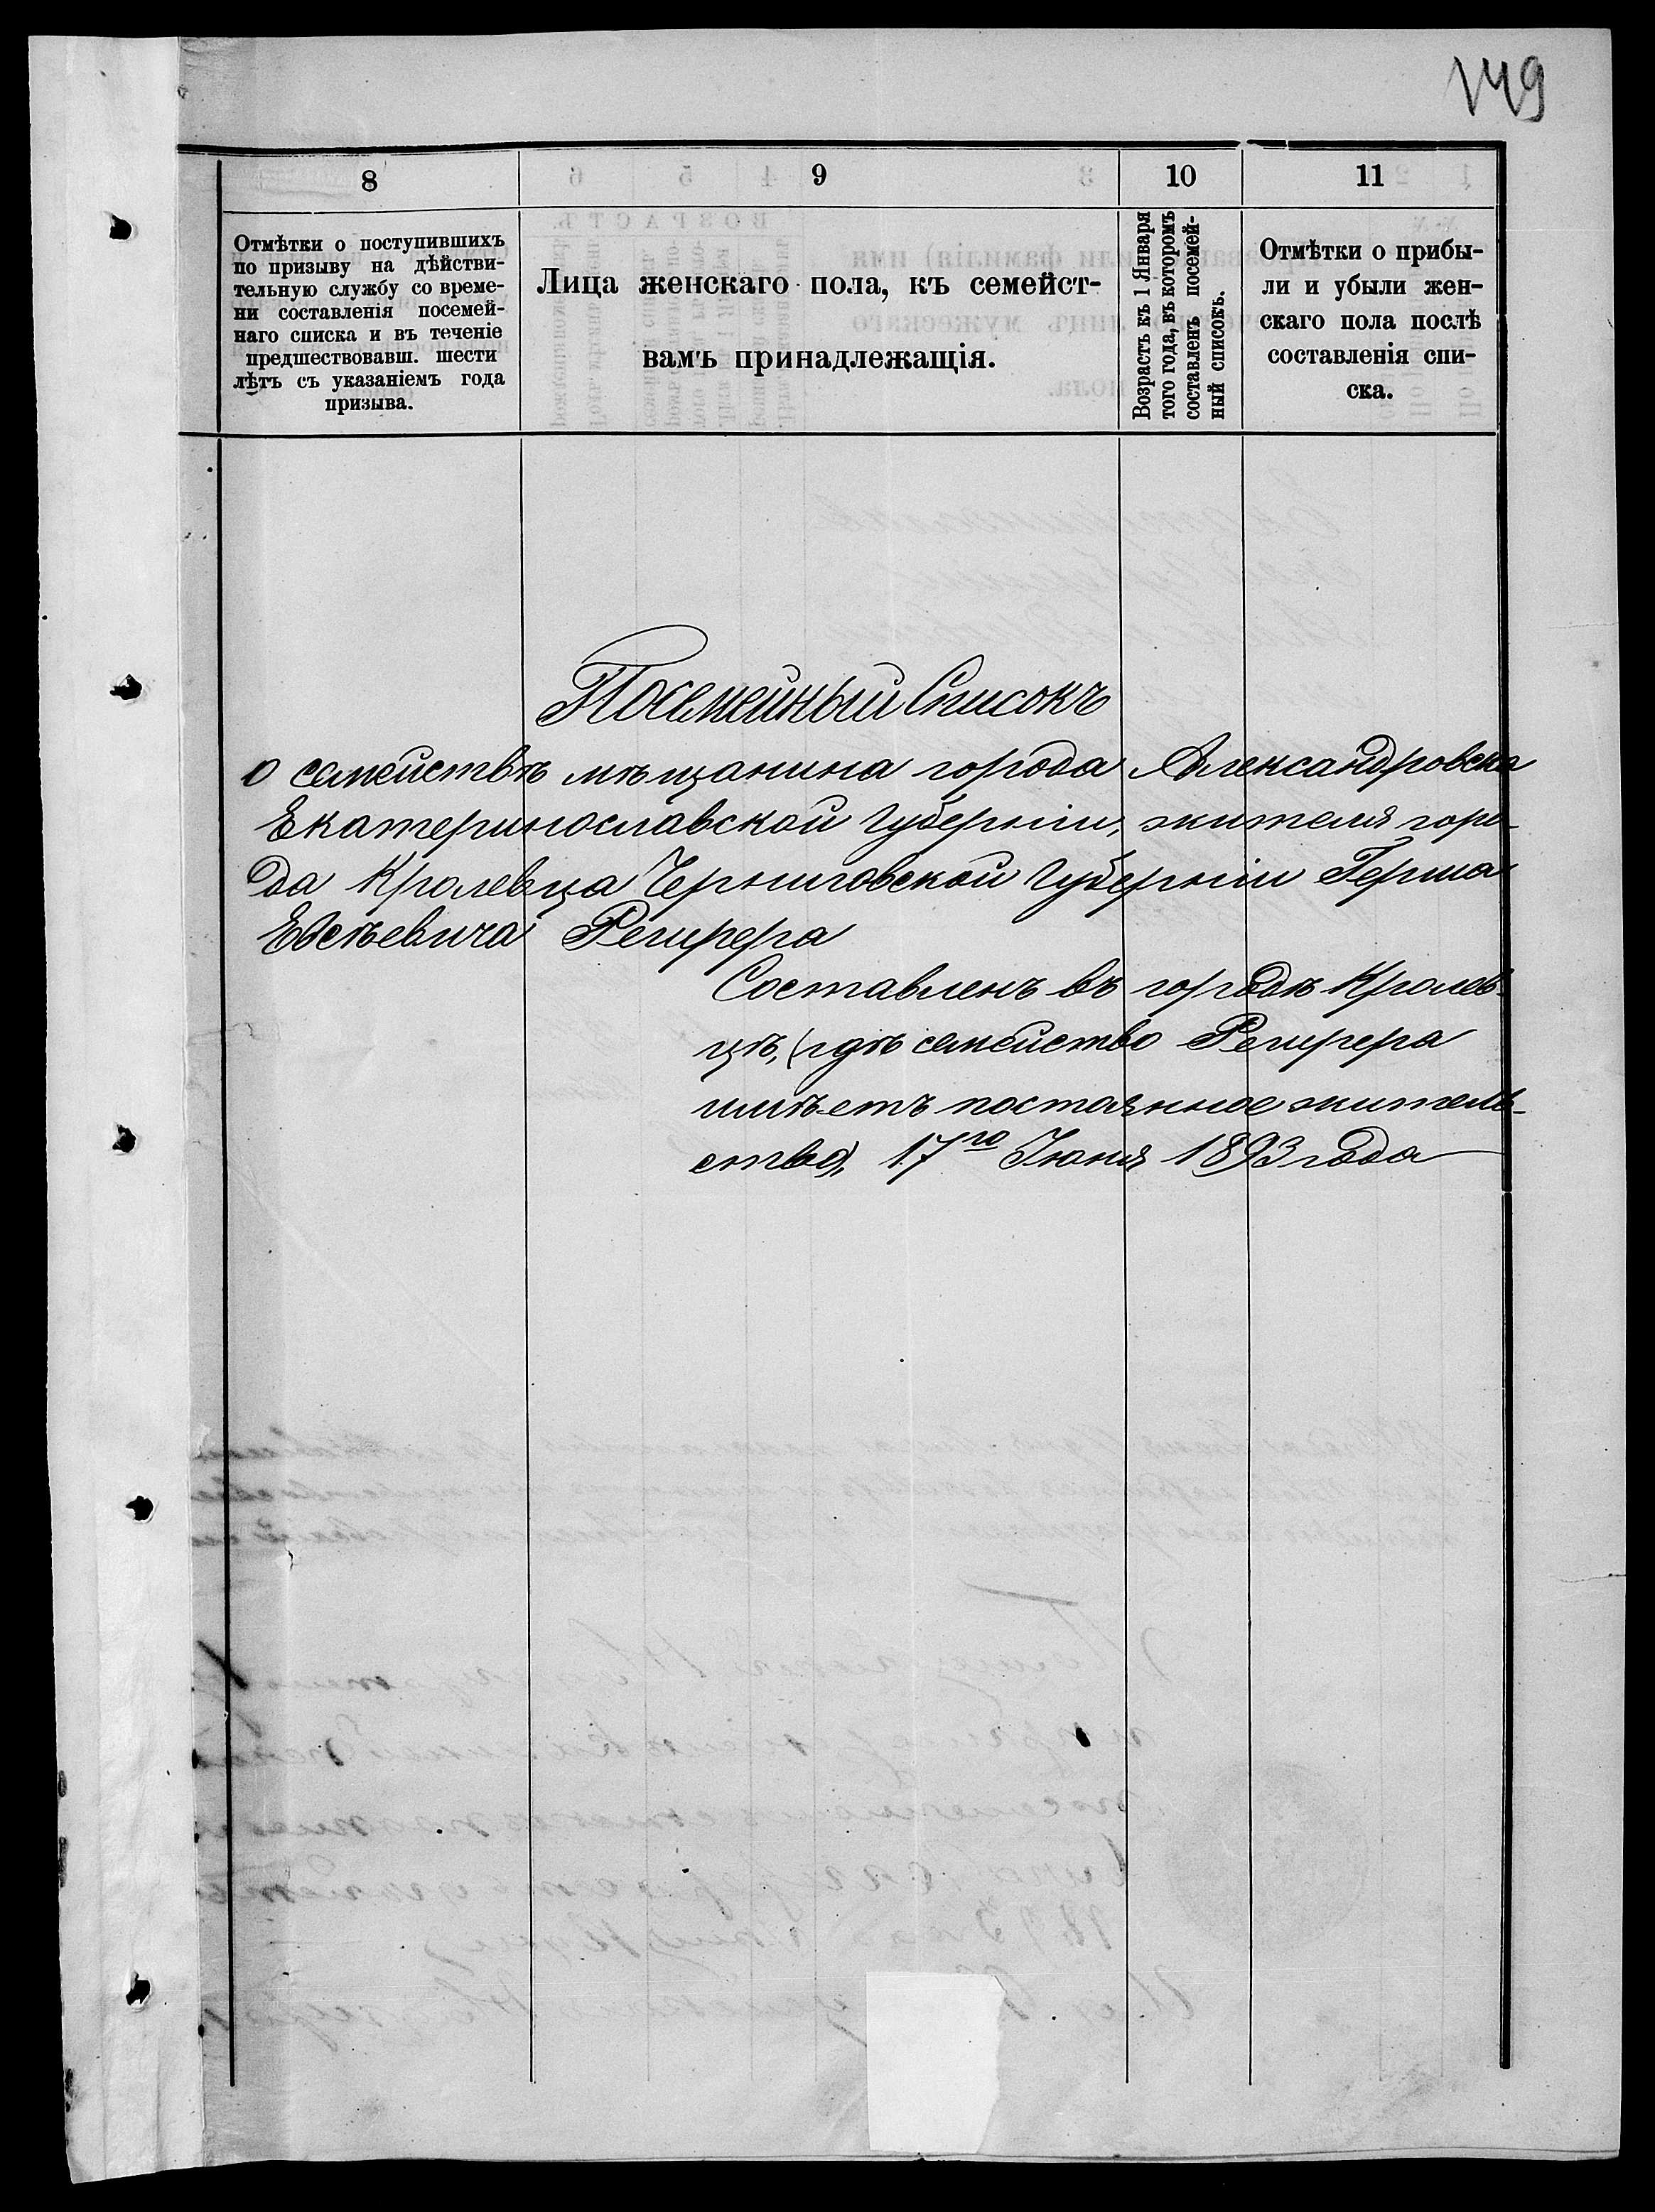 149
8
9
10
11
Отмѣтки о поступившихъ
по призыву на дѣйстви-
тельную службу со време-
ни составленія посемей-
наго списка и въ теченіе
предшествовавш. шести
лѣтъ съ указаніемъ года
призыва.
Лица женскаго пола, къ семейст-
вамъ принадлежащія.
Возрастъ къ 1 Января
того года, въ которомъ
составленъ посемей-
ный списокъ.
Отмѣтки о прибы-
ли и убыли жен-
скаго пола послѣ
составленія спи-
ска.
Посемейный Списокъ
о семействѣ мѣщанина города Александровска
Екатеринославской губерніи, жителя горо-
да Кролевца Черниговской губерніи Герша
Евсѣевича
Составленъ въ городѣ Кролев-
цѣ, (гдѣ семейство
имѣетъ постоянное житель-
ство), 17го Іюня 1893 года